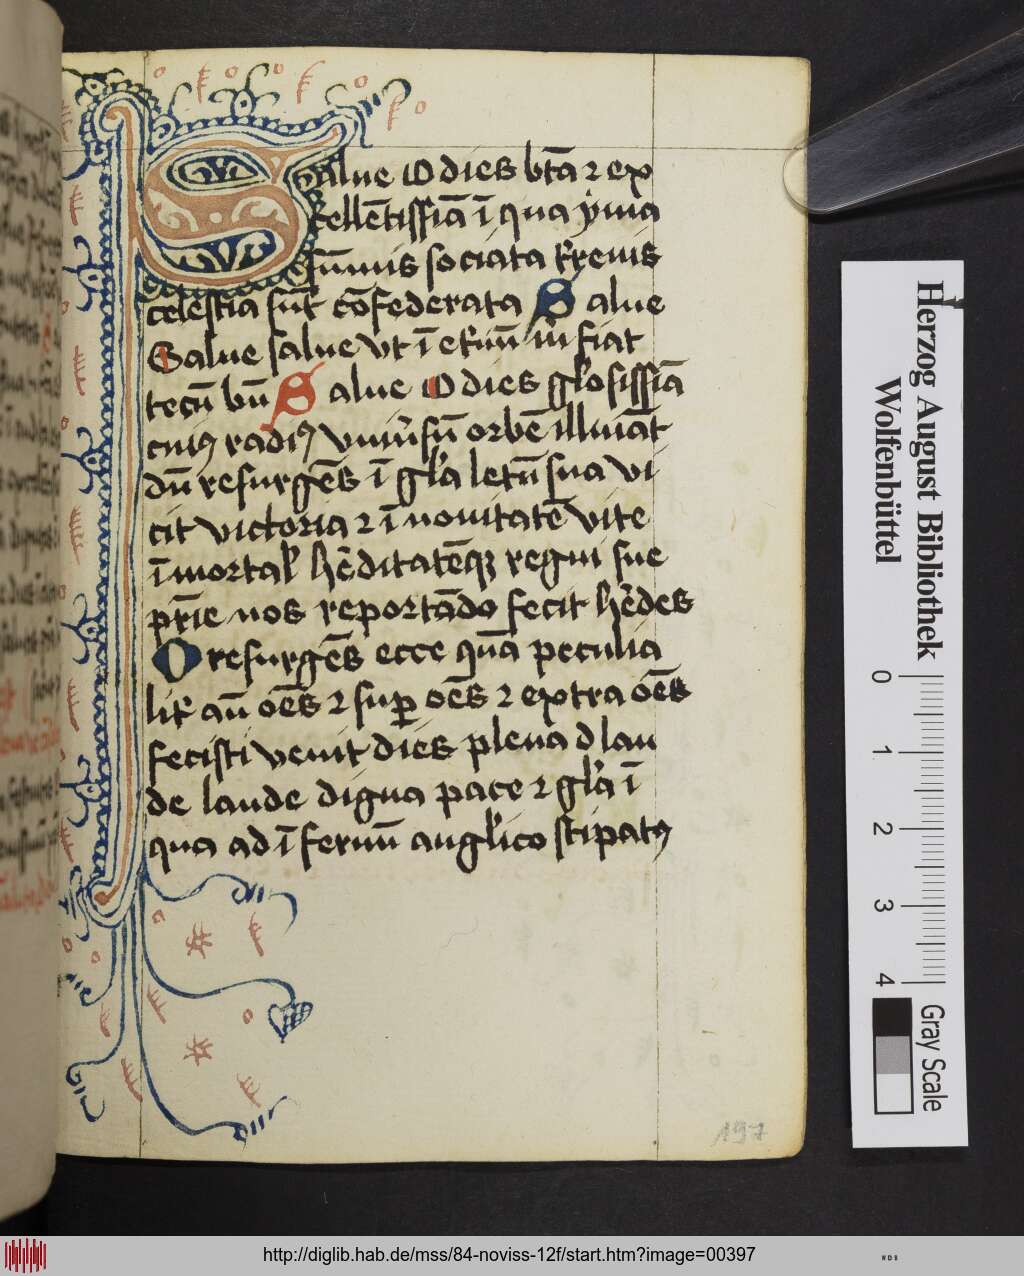 Salue O dies btā ⁊ ex
cellētissīā ī qua yma
sūmis sociata t'renis
celestia sūt cōfederata Salue
Salue salue vt ī et'nū m̄ fiat
tecū bn̄ Salue O dies gl'osissīā
cuiꝰ radiꝰ vniu'sū orbē illuīat
dū resurgēs ī gl'a letū sua vi
cit victoria ⁊ ī nouitatē vite
īmortal' h'editatēqꝫ regni sue
pr̄ie nos reportādo fecit h'edes
O resurgēs ecce quā peculia
lit' an̄ oēs ⁊ suꝑ oēs ⁊ extra oēs
fecisti venit dies plena d lau
de laude digna pace ⁊ gl'a ī
qua ad īfernū angl'ico stipatꝰ
197
Herzog August Bibliothek
Wolfenbüttel
0 1 2 3 4
Gray Scale
http://diglib.hab.de/mss/84-noviss-12f/start.htm?image=00397